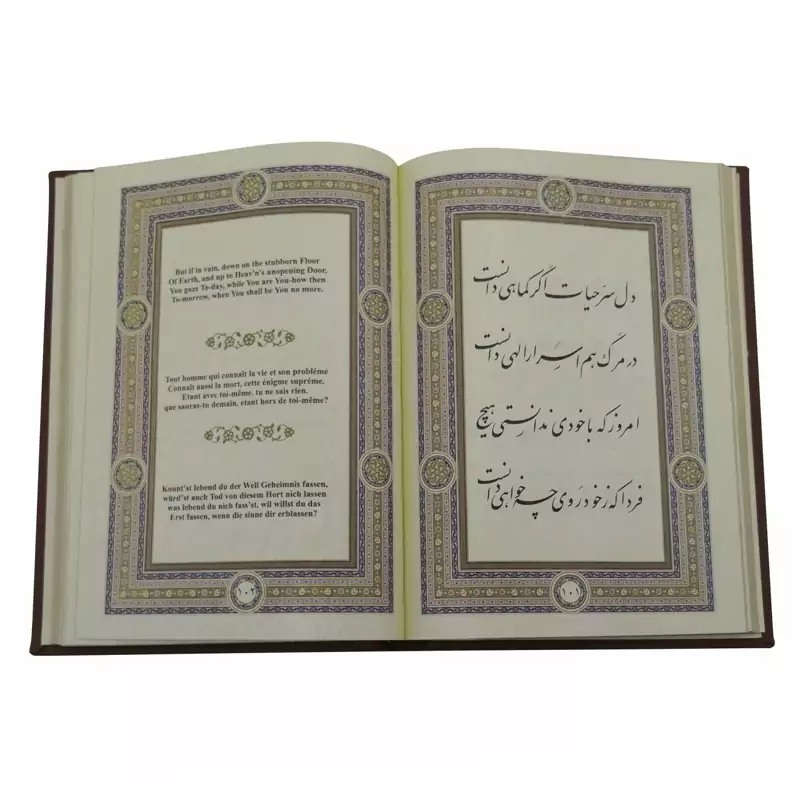 دل سرّ حیات اگر کماهی دانست
در مرگ هم اسرار الهی دانست
امروز که با خودی ندانستی هیچ
فردا که ز خود روی چه خواهی دانست
۱۰۱
But if in vain, down on the stubborn Floor
Of Earth, and up to Heav'n's unopening Door,
You gaze To-day, while You are You-how then
To-morrow, when You shall be You no more.
Tout homme qui connaît la vie et son probléme
Connaît aussi la mort, cette énigme supréme.
Etant avec toi-même. tu ne sais rien.
que sauras-tu demain. etant hors de toi-même?
Konnt'st lebend du der Weil Geheimnis fassen,
würd'st anch Tod von diesem Hort nich lassen
was lebend du nich fass'st, wil willst du das
Erst fassen, wenn die sinne dir erblassen?
۱۰۲